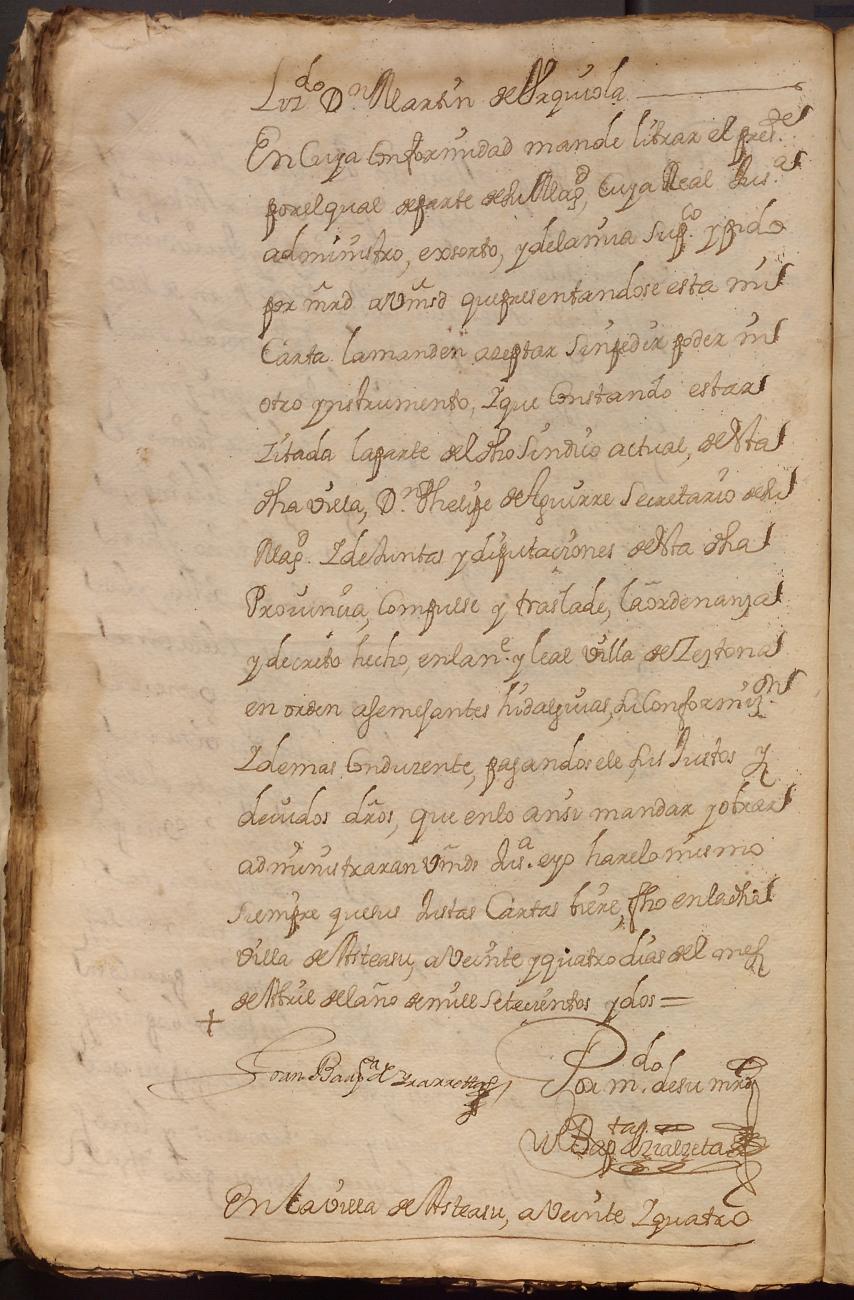 Lizdo Dn Martin de Vrquiola
En Cuya Conformidad mande librar el preste
por el qual de parte de su Magd, Cuya Real Jusa
administro, exsorto, y de la mia supco y pido
por mrd a Vmsd que presentandose esta mi
Carta la manden azeptar sin pedir poder ni
otro ynstrumento, I que Constando estar
Zitada la parte del dho Sindico actual, de esta
dha villa, Dn Phelipe de Aguirre Secretario de su
Magd. I de Juntas y diputaciones de esta dha
Prouinçia, Compulse y traslade, la ordenanza
y decreto hecho, en la ne. y leal villa de Zestona
en orden a semejantes hidalguias, su Conformizon
I demas Conduzente, pagandosele sus Justos y
deuidos dros, que en lo ansi mandar y obrar
administraran Vmds Jusa. e yo hare lo mismo
siempre que sus Justas Cartas biere, fho en la dha
villa de Asteasu, a Veinte y quatro dias del mes
de Abril del año de mill setecientos y dos =
+ Joan Bapta de Yzarretta
Por mdo. de su mrd
Bapta de Lizalzeta
En la villa de Asteasu, a Veinte I quatro